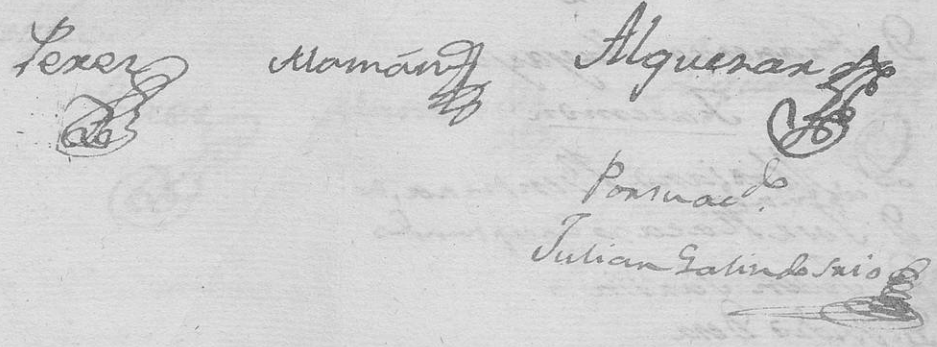 Perez Momán Alquezar
Por su acdo.
Julian Galindo Srio